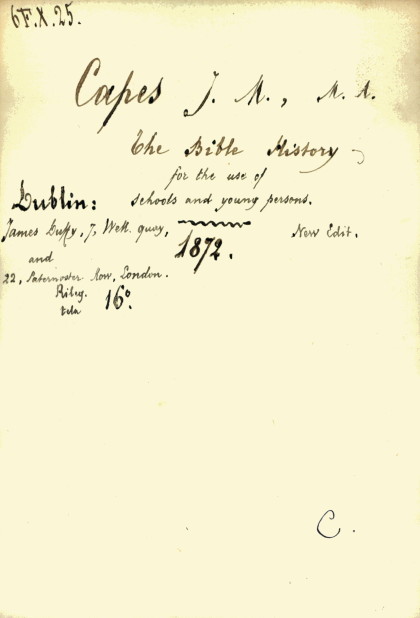 6F.X.25.
Capes J. M., M. A.
The Bible History
for the use of
Dublin: schools and young persons.
James Duffy, 7, Well. quay, New Edit.
1872.
and
22, Paternoster Row, London.
Rileg. 16°.
tela
C.